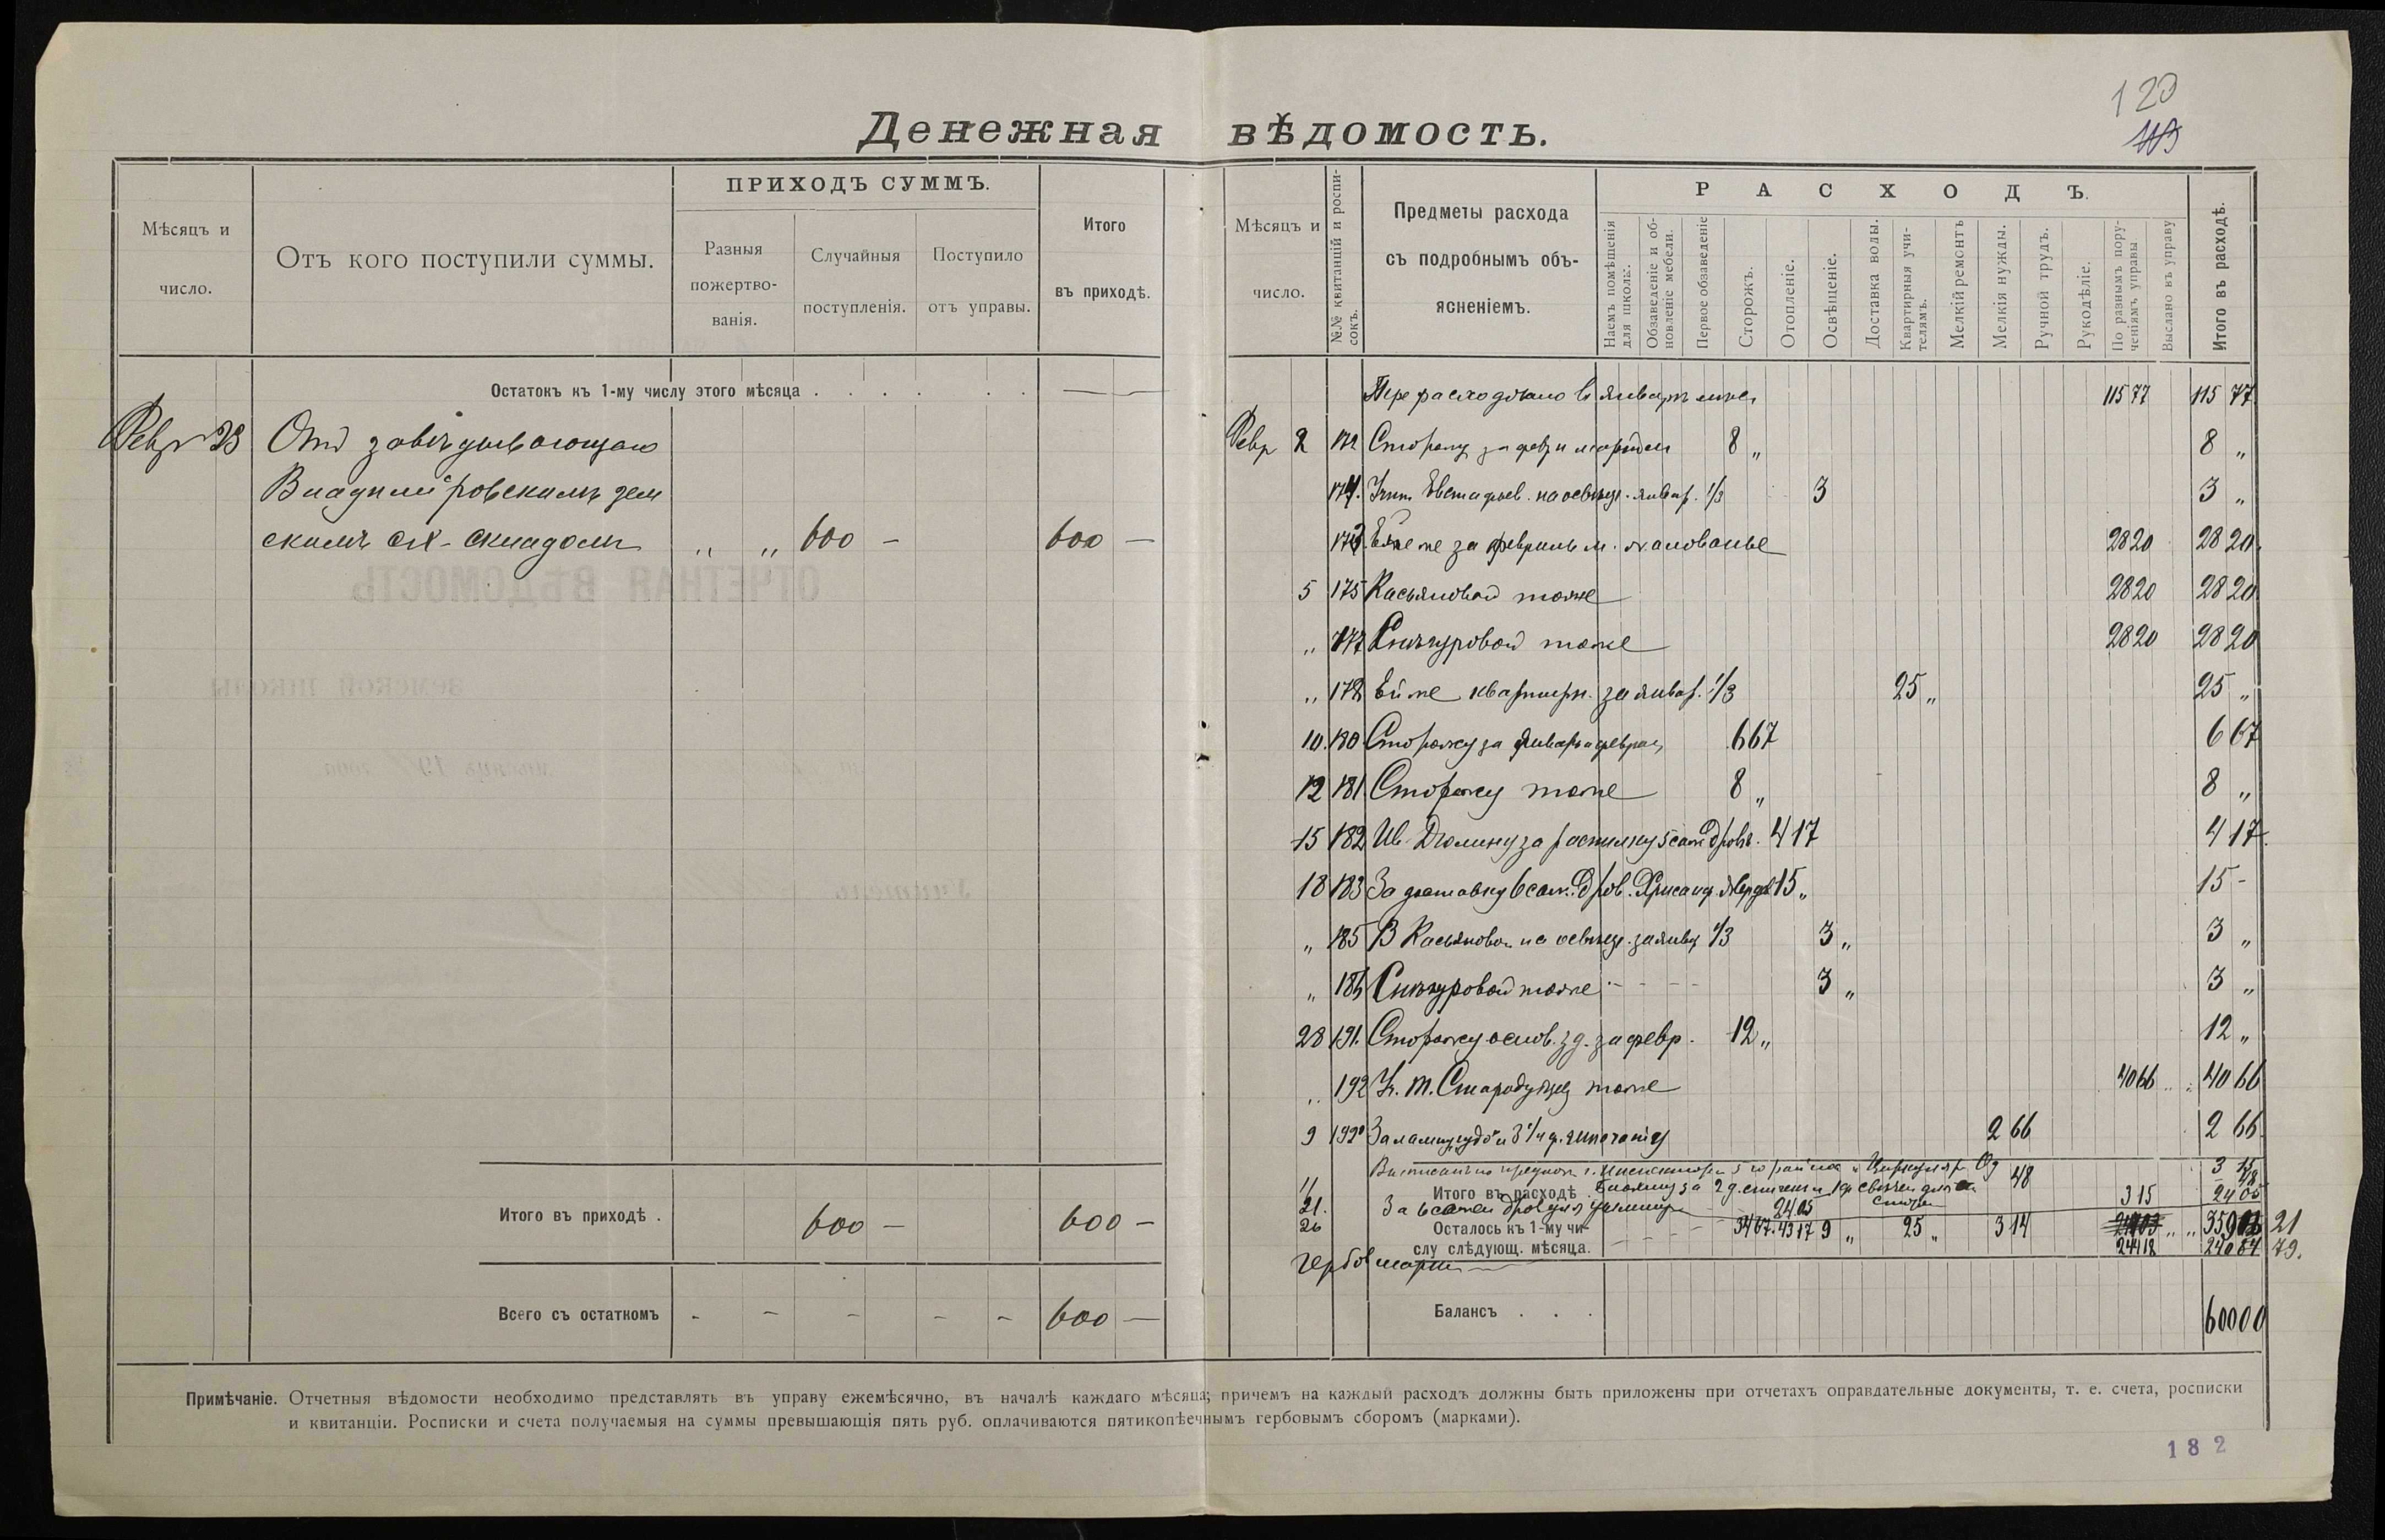 120
Денежная вѣдомость.
Мѣсяцъ и число.
Отъ кого поступили суммы.
ПРИХОДЪ СУММЪ.
Разныя пожертво-ванія.
Случайныя поступленія.
Поступило отъ управы.
Итого въ приходѣ.
Остатокъ къ 1-му числу этого мѣсяца . . . . . .
Февр 23 Отъ завѣдывающаго
Владимировскимъ зем
скимъ с.х. складомъ „ „ 600 — 600 —
Итого въ приходѣ . 600 — 600 —
Всего съ остаткомъ - - - - - 600 —
Мѣсяцъ и число.
№№ квитанцій и роспи-сокъ.
Предметы расхода съ подробнымъ объ-ясненіемъ.
РАСХОДЪ.
Наемъ помѣщенія для школы.
Обзаведеніе и об-новленіе мебели.
Первое обзаведеніе
Сторожъ.
Отопленіе.
Освѣщеніе.
Доставка воды.
Квартирныя учи-телямъ.
Мелкій ремонтъ
Мелкія нужды.
Ручной трудъ.
Рукодѣліе.
По разнымъ пору-ченіямъ управы
Выслано въ управу
Итого въ расходѣ.
Перерасходовано въ январѣ 115 77 115 77
Февр 2 172 Сторожу за февр и мартъ 8 „ 8 „
174. Евстафьев. на освѣщ. январ. 1/3 3 3 „
173. Ей же за февраль м. жалованье 28 20 28 20
5 175 Касьяновой тоже 28 20 28 20
„ 177 тоже 28 20 28 20
„ 178 Ей же квартирн. за январ. 1/3 25 „ 25 „
10. 180 Сторожу за январь и февраль 6 67 6 67
12 181 Сторожу тоже 8 „ 8 „
15 182 Ив. Дюлину за распилку 5 саж дровъ. 4 17 4 17
18 183 За доставку 6 саж. дров. 15 „ 15 -
„ 185 В Касьяновой на освѣщ. за январ 1/3 3 „ 3 „
„ 186 тоже - - - - 3 „ 3 „
28 191. Сторожу основ. зд. за февр. 12 „ 12 „
„ 192 тоже 40 66 40 66
9 192 За 2 66 2 66
3 15
11 Итого въ расходѣ за 2 48 48
21. За 6 сажен дров для 24 05 3 15 24 05
26 Осталось къ 1-му чи-слу слѣдующ. мѣсяца. 34 67 43 17 9 „ 25 „ 3 14 244 18 359 21
240 79.
Гербов марки
Балансъ . . . 600 00
Примѣчаніе. Отчетныя вѣдомости необходимо представлять въ управу ежемѣсячно, въ началѣ каждаго мѣсяца; причемъ на каждый расходъ должны быть приложены при отчетахъ оправдательные документы, т. е. счета, росписки
и квитанціи. Росписки и счета получаемыя на суммы превышающія пять руб. оплачиваются пятикопѣечнымъ гербовымъ сборомъ (марками).
182